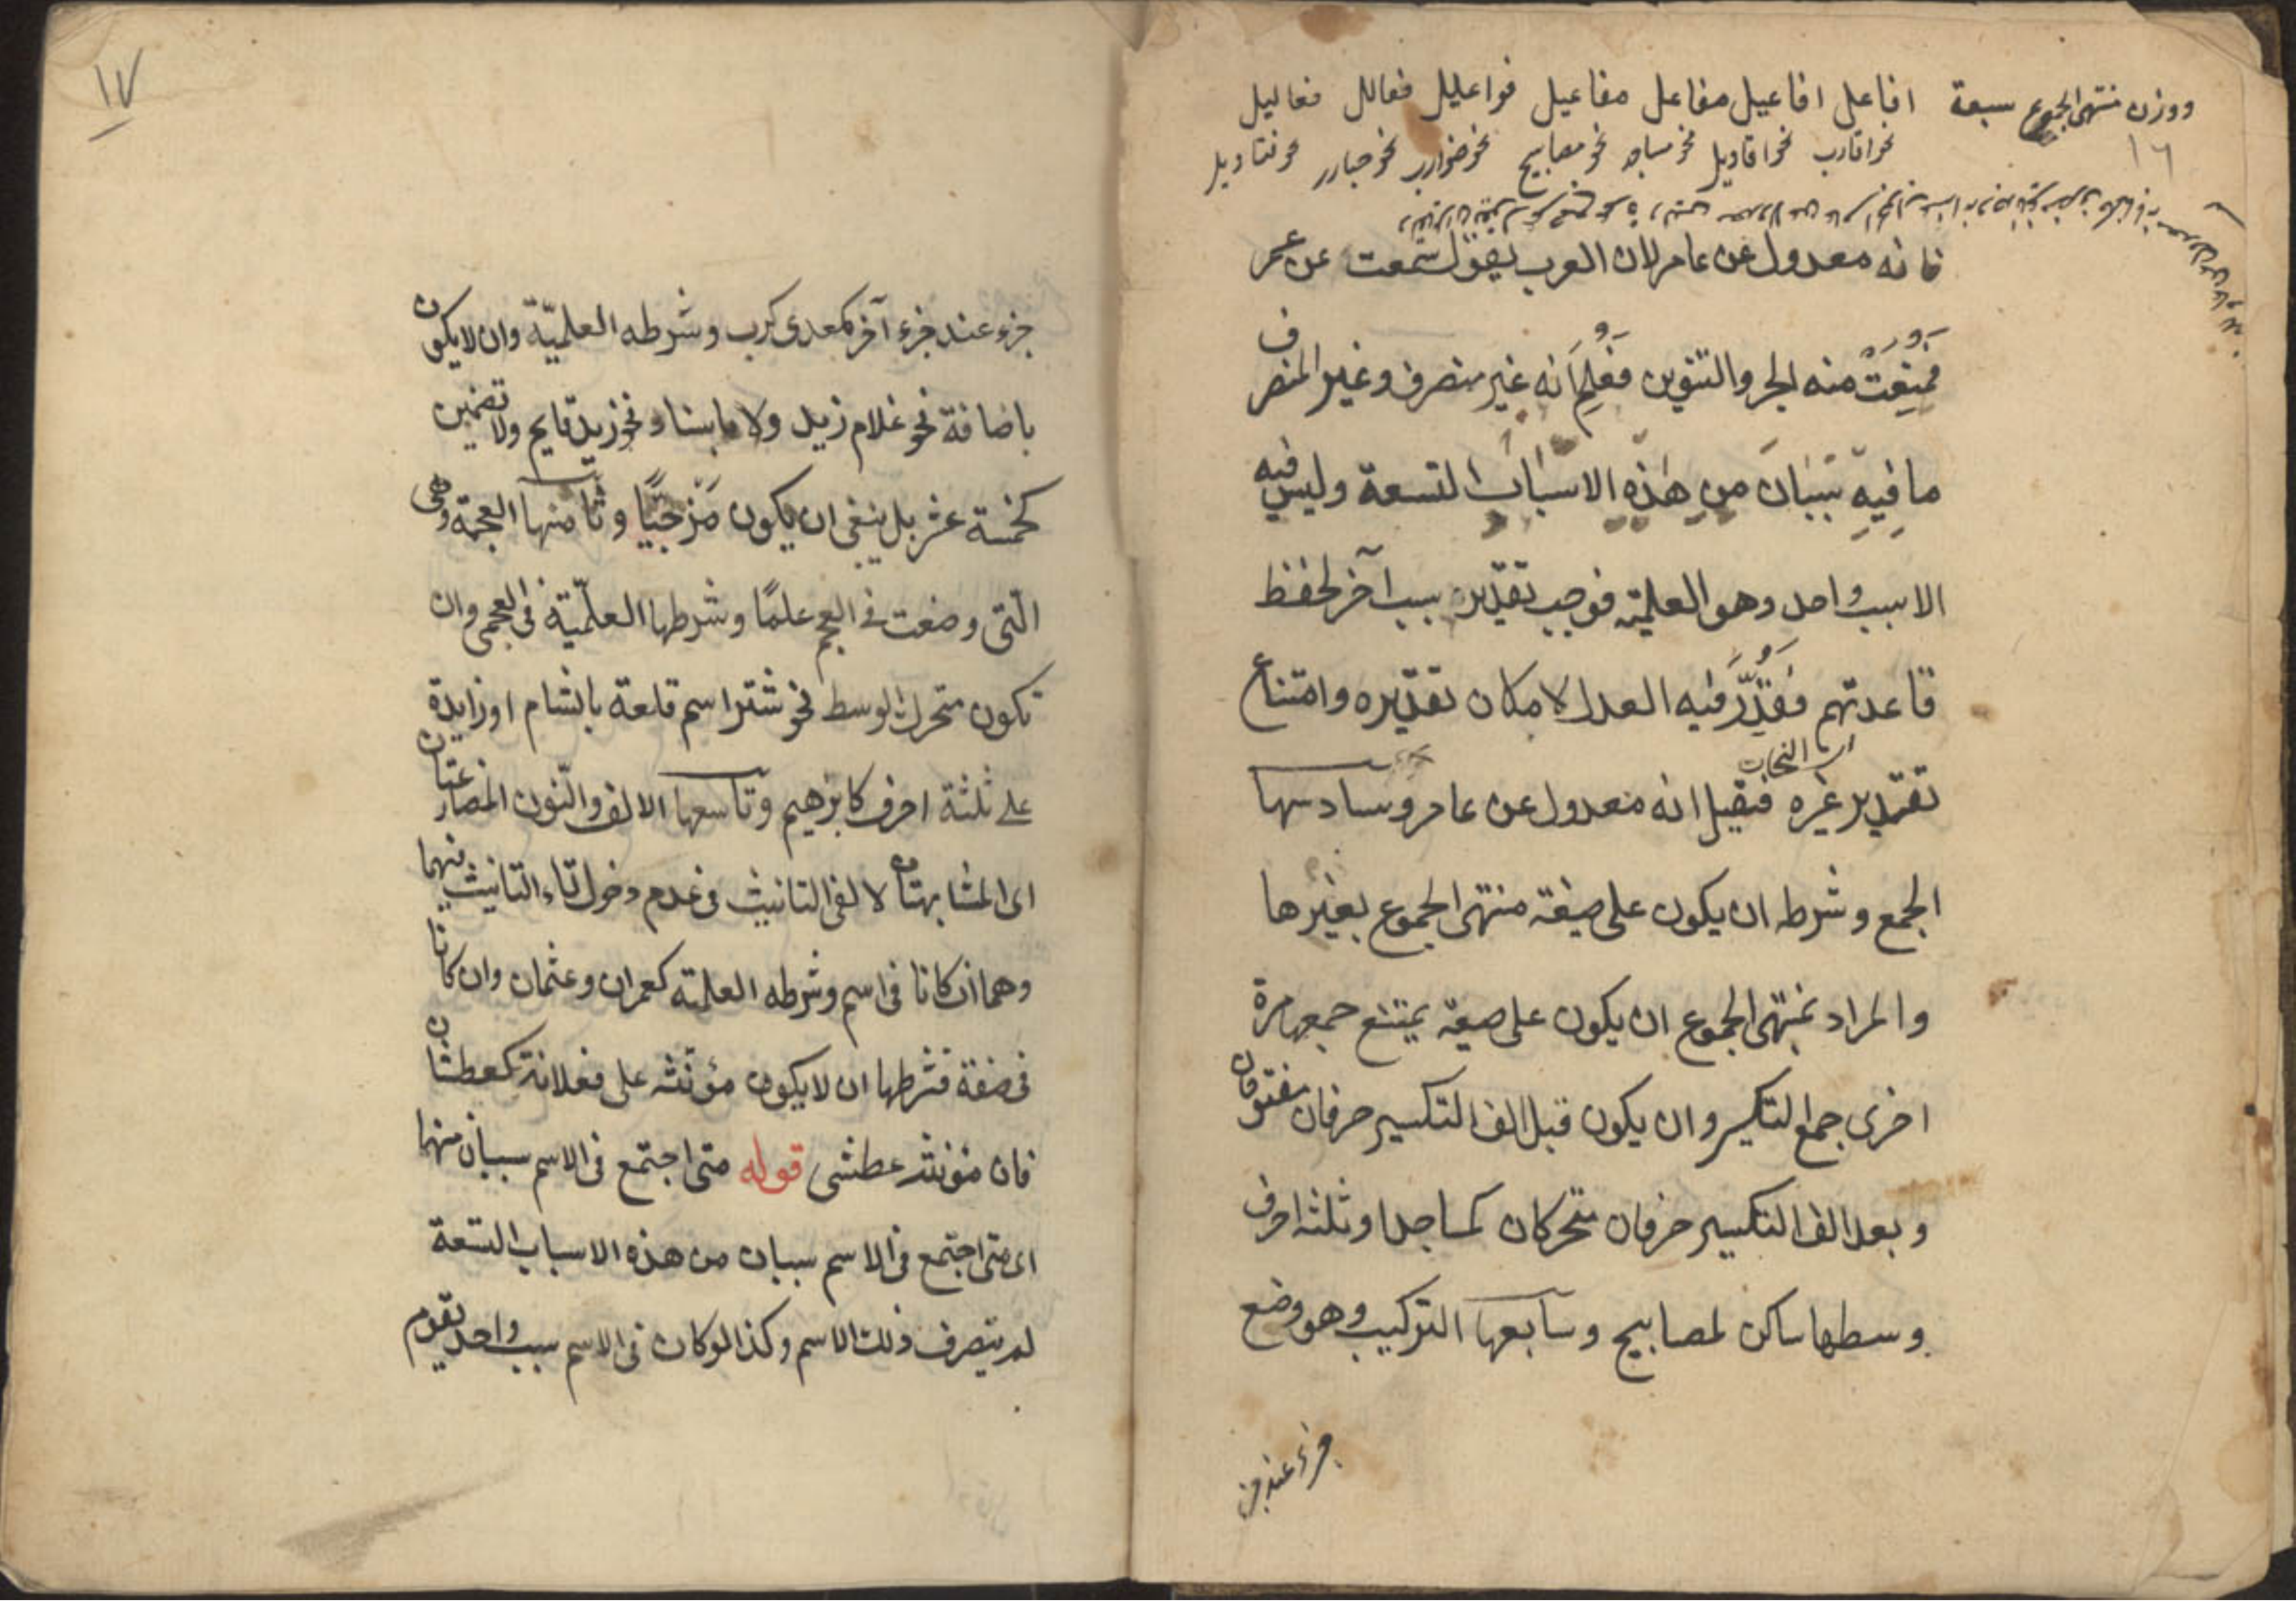 ووزن منتهى الجموع سبعة افاعل افاعيل مفاعل مفاعيل فواعليل فعالل فعاليل
١٦
نحو اقارب نحو اقاويل نحو مساجد نحو مصابيح نحو ضوارب نحو
فانه معدول عن عامر لان العرب يقول سمعت عن عمر
فمُنِعَتْ منه الجر والتنوين فعُلِمَ انه غير منصرف وغير المنصرف
ما فيه سببان من هذه الاسباب التسعة وليس فيه
الا سبب واحد وهو العلمية فوجب تقدير سبب آخر لحفظ
قاعدتهم فقُدِّرَ فيه العدل لامكان تقديره وامتناع
تقدير غيره فقيل انه معدول عن عامر وسادسها
الجمع وشرطه ان يكون على صيغة منتهى الجموع بغير ها
والمراد بمنتهى الجموع ان يكون على صيغة يمتنع جمعها مرة
اخرى جمع التكسير وان يكون قبل الف التكسير حرفان مفتوحان
وبعد الف التكسير حرفان متحركان كمساجد او ثلثة احرف
وسطها ساكن لمصابيح وسابعها التركيب وهو وضع
جزء عند جز
١٧
جزء عند جزء آخر كمعدى كرب وشرطه العلميّة وان لا يكون
باضافة نحو غلام زيد ولا باسناد نحو زيد قايم ولا تضمين
كخمسة عشر بل ينبغى ان يكون مَزْجيًّا وثامنها العجمة وهى
الّتى وضعت فى العجم علمًا وشرطها العلميّة فى العجمى وان
تكون متحرك الوسط نحو شتر اسم قلعة بالشام او زايدة
على ثلثة احرف كابرهيم وتاسعها الالف والنّون المضارعتان
اى المشابهتان لالفى التانيث فى عدم دخول تاء التانيث فيهما
وهما ان كانا فى اسم وشرطه العلمية كعمران وعثمان وان كانا
فى صفة فشرطها ان لا يكون مؤنثه على فعلانة كعطشان
فان مؤنثه عطشى قوله متى اجتمع فى الاسم سببان منهما
اى متى اجتمع فى الاسم سببان من هذه الاسباب التسعة
لم يتصرف ذلك الاسم وكذا لو كان فى الاسم سبب واحد يقوم